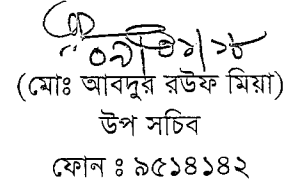 (মোঃ আবদুর রউফ মিয়া)
উপ সচিব
ফোন ঃ ৯৫১৪১৪২